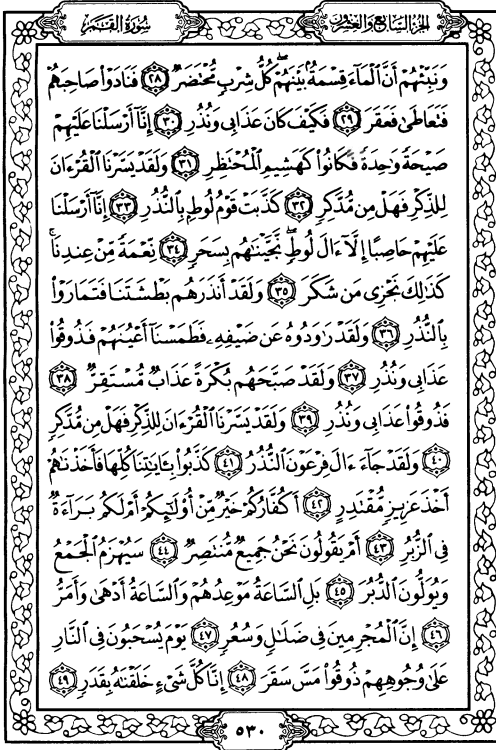 الجزء السابع والعشرون
سورة القمر
وَنَبِّئْهُمْ أَنَّ ٱلْمَآءَ قِسْمَةٌۢ بَيْنَهُمْ ۖ كُلُّ شِرْبٍ مُّحْتَضَرٌ ﴿٢٨﴾ فَنَادَوْا۟ صَاحِبَهُمْ
فَتَعَاطَىٰ فَعَقَرَ ﴿٢٩﴾ فَكَيْفَ كَانَ عَذَابِى وَنُذُرِ ﴿٣٠﴾ إِنَّآ أَرْسَلْنَا عَلَيْهِمْ
صَيْحَةً وَٰحِدَةً فَكَانُوا۟ كَهَشِيمِ ٱلْمُحْتَظِرِ ﴿٣١﴾ وَلَقَدْ يَسَّرْنَا ٱلْقُرْءَانَ
لِلذِّكْرِ فَهَلْ مِن مُّدَّكِرٍ ﴿٣٢﴾ كَذَّبَتْ قَوْمُ لُوطٍۭ بِٱلنُّذُرِ ﴿٣٣﴾ إِنَّآ أَرْسَلْنَا
عَلَيْهِمْ حَاصِبًا إِلَّآ ءَالَ لُوطٍ ۖ نَّجَّيْنَٰهُم بِسَحَرٍ ﴿٣٤﴾ نِّعْمَةً مِّنْ عِندِنَا ۚ
كَذَٰلِكَ نَجْزِى مَن شَكَرَ ﴿٣٥﴾ وَلَقَدْ أَنذَرَهُم بَطْشَتَنَا فَتَمَارَوْا۟
بِٱلنُّذُرِ ﴿٣٦﴾ وَلَقَدْ رَٰوَدُوهُ عَن ضَيْفِهِۦ فَطَمَسْنَآ أَعْيُنَهُمْ فَذُوقُوا۟
عَذَابِى وَنُذُرِ ﴿٣٧﴾ وَلَقَدْ صَبَّحَهُم بُكْرَةً عَذَابٌ مُّسْتَقِرٌّ ﴿٣٨﴾
فَذُوقُوا۟ عَذَابِى وَنُذُرِ ﴿٣٩﴾ وَلَقَدْ يَسَّرْنَا ٱلْقُرْءَانَ لِلذِّكْرِ فَهَلْ مِن مُّدَّكِرٍ
﴿٤٠﴾ وَلَقَدْ جَآءَ ءَالَ فِرْعَوْنَ ٱلنُّذُرُ ﴿٤١﴾ كَذَّبُوا۟ بِـَٔايَٰتِنَا كُلِّهَا فَأَخَذْنَٰهُمْ
أَخْذَ عَزِيزٍ مُّقْتَدِرٍ ﴿٤٢﴾ أَكُفَّارُكُمْ خَيْرٌ مِّنْ أُو۟لَٰٓئِكُمْ أَمْ لَكُم بَرَآءَةٌ
فِى ٱلزُّبُرِ ﴿٤٣﴾ أَمْ يَقُولُونَ نَحْنُ جَمِيعٌ مُّنتَصِرٌ ﴿٤٤﴾ سَيُهْزَمُ ٱلْجَمْعُ
وَيُوَلُّونَ ٱلدُّبُرَ ﴿٤٥﴾ بَلِ ٱلسَّاعَةُ مَوْعِدُهُمْ وَٱلسَّاعَةُ أَدْهَىٰ وَأَمَرُّ
﴿٤٦﴾ إِنَّ ٱلْمُجْرِمِينَ فِى ضَلَٰلٍ وَسُعُرٍ ﴿٤٧﴾ يَوْمَ يُسْحَبُونَ فِى ٱلنَّارِ
عَلَىٰ وُجُوهِهِمْ ذُوقُوا۟ مَسَّ سَقَرَ ﴿٤٨﴾ إِنَّا كُلَّ شَىْءٍ خَلَقْنَٰهُ بِقَدَرٍ ﴿٤٩﴾
٥٣٠